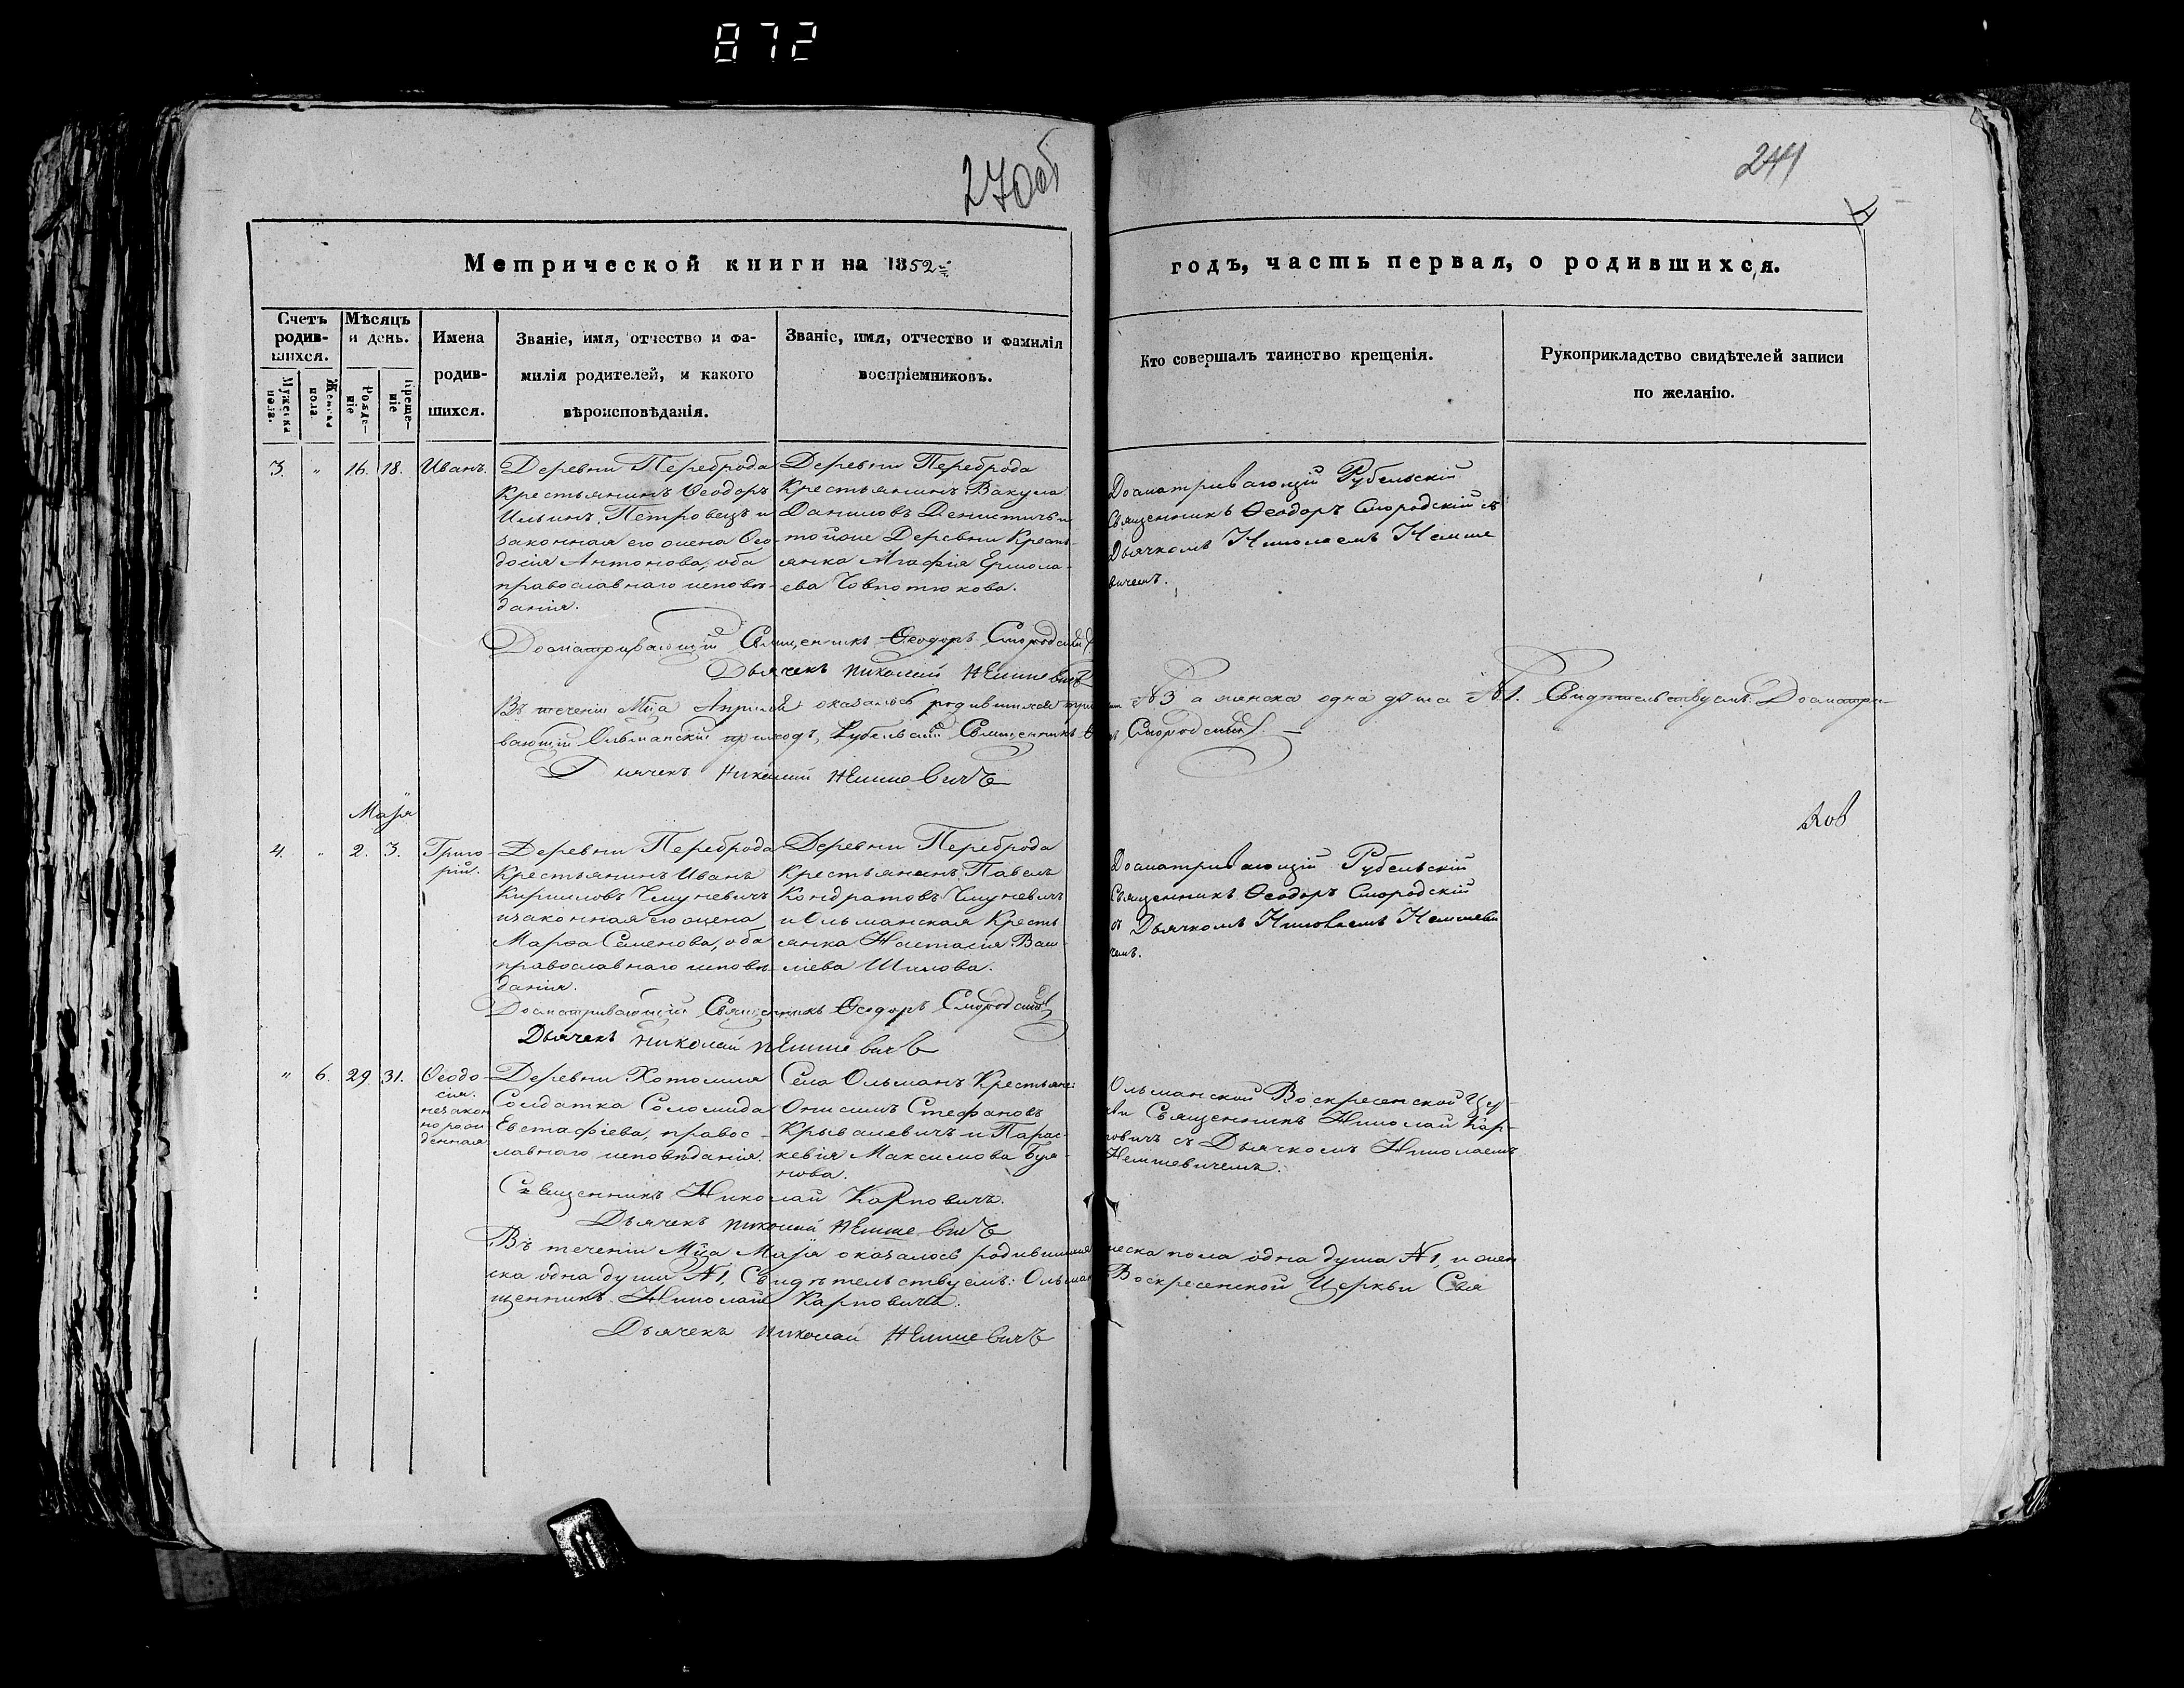 872
270об
244
Метрической книги на 1852й
годъ, часть первая, о родившихся.
Счетъ родив-
шихся.
Мужеска пола.
Женска пола.
Мѣсяцъ и день.
Рожде-
ніе
Креще-
ніе
Имена
родив-
шихся.
Званіе, имя, отчество и фа-
милія родителей, и какого
вѣроисповѣданія.
Званіе, имя, отчество и фамилія
воспріемниковъ.
Кто совершалъ таинство крещенія.
Рукоприкладство свидѣтелей записи
по желанію.
3. " 16. 18. Иванъ.
Деревни Переброда
Крестьянинъ Ѳеодоръ
Ильинъ Петровецъ и
законная его жена Ѳео-
досія Антонова, оба
православнаго исповѣ-
данія.
Деревни Переброда
Крестьянинъ Вакула
Даниловъ Денисичъ и
тойже Деревни Кресть-
янка Агафія Ермола-
ева
Досматривающій Рубельскій
Священникъ Ѳеодоръ Смородскій съ
Дьячкомъ Николаемъ Немше
вичемъ.
Досматривающій Священникъ Ѳеодоръ Смородскій
Дьячекъ Николай Немшевичъ
Въ теченіи Мца Апрѣля оказалось родившихся N3 а женска одна душа N1. Свидѣтельствуемъ: Досматри-
вающій Ольманскій приходъ, Рубельскій Священникъ Смородскій.
Дьячекъ Николай Немшевичъ
Маія
4. " 2. 3. Григо-
рій.
Деревни Переброда
Крестьянинъ Иванъ
Кирилловъ Чмуневичъ
и законная его жена
Марѳа Семенова, оба
православнаго исповѣ-
данія.
Деревни Переброда
Крестьянинъ Павелъ
Кондратовъ Чмуневичъ
и Ольманская Кресть
янка Настасія Васи-
лева Шилова.
Досматривающій Рубельскій
Священникъ Ѳеодоръ Смородскій
съ Дьячкомъ Николаемъ Немшеви
чемъ.
Досматривающій Священникъ Ѳеодоръ Смородскій
Дьячекъ Николай Немшевичъ
" 6. 29 31. Ѳеодо-
сія.
незакон
но рож
денная
Деревни Хотомля
Солдатка Соломида
Евстафіева, правос-
лавнаго исповѣданія.
Села Ольманъ Крестьяне:
Онисимъ Стефановъ
Крывалевичъ и Парас-
кевія Максимова Буя-
нова.
Ольманской Воскресенской Це-
ркви Священникъ Николай Кар-
повичъ съ Дьячкомъ Николаемъ
Немшевичемъ.
Священникъ Николай Карповичъ.
Дьячекъ Николай Немшевичъ
Въ теченіи Мца Маія оказалось родившихся ческа пола одна душа N1, и жен
ска одна душа N1, Свидѣтельствуемъ: Ольман Воскресенской Церкви Свя
щенникъ Николай Карповичъ.
Дьячекъ Николай Немшевичъ